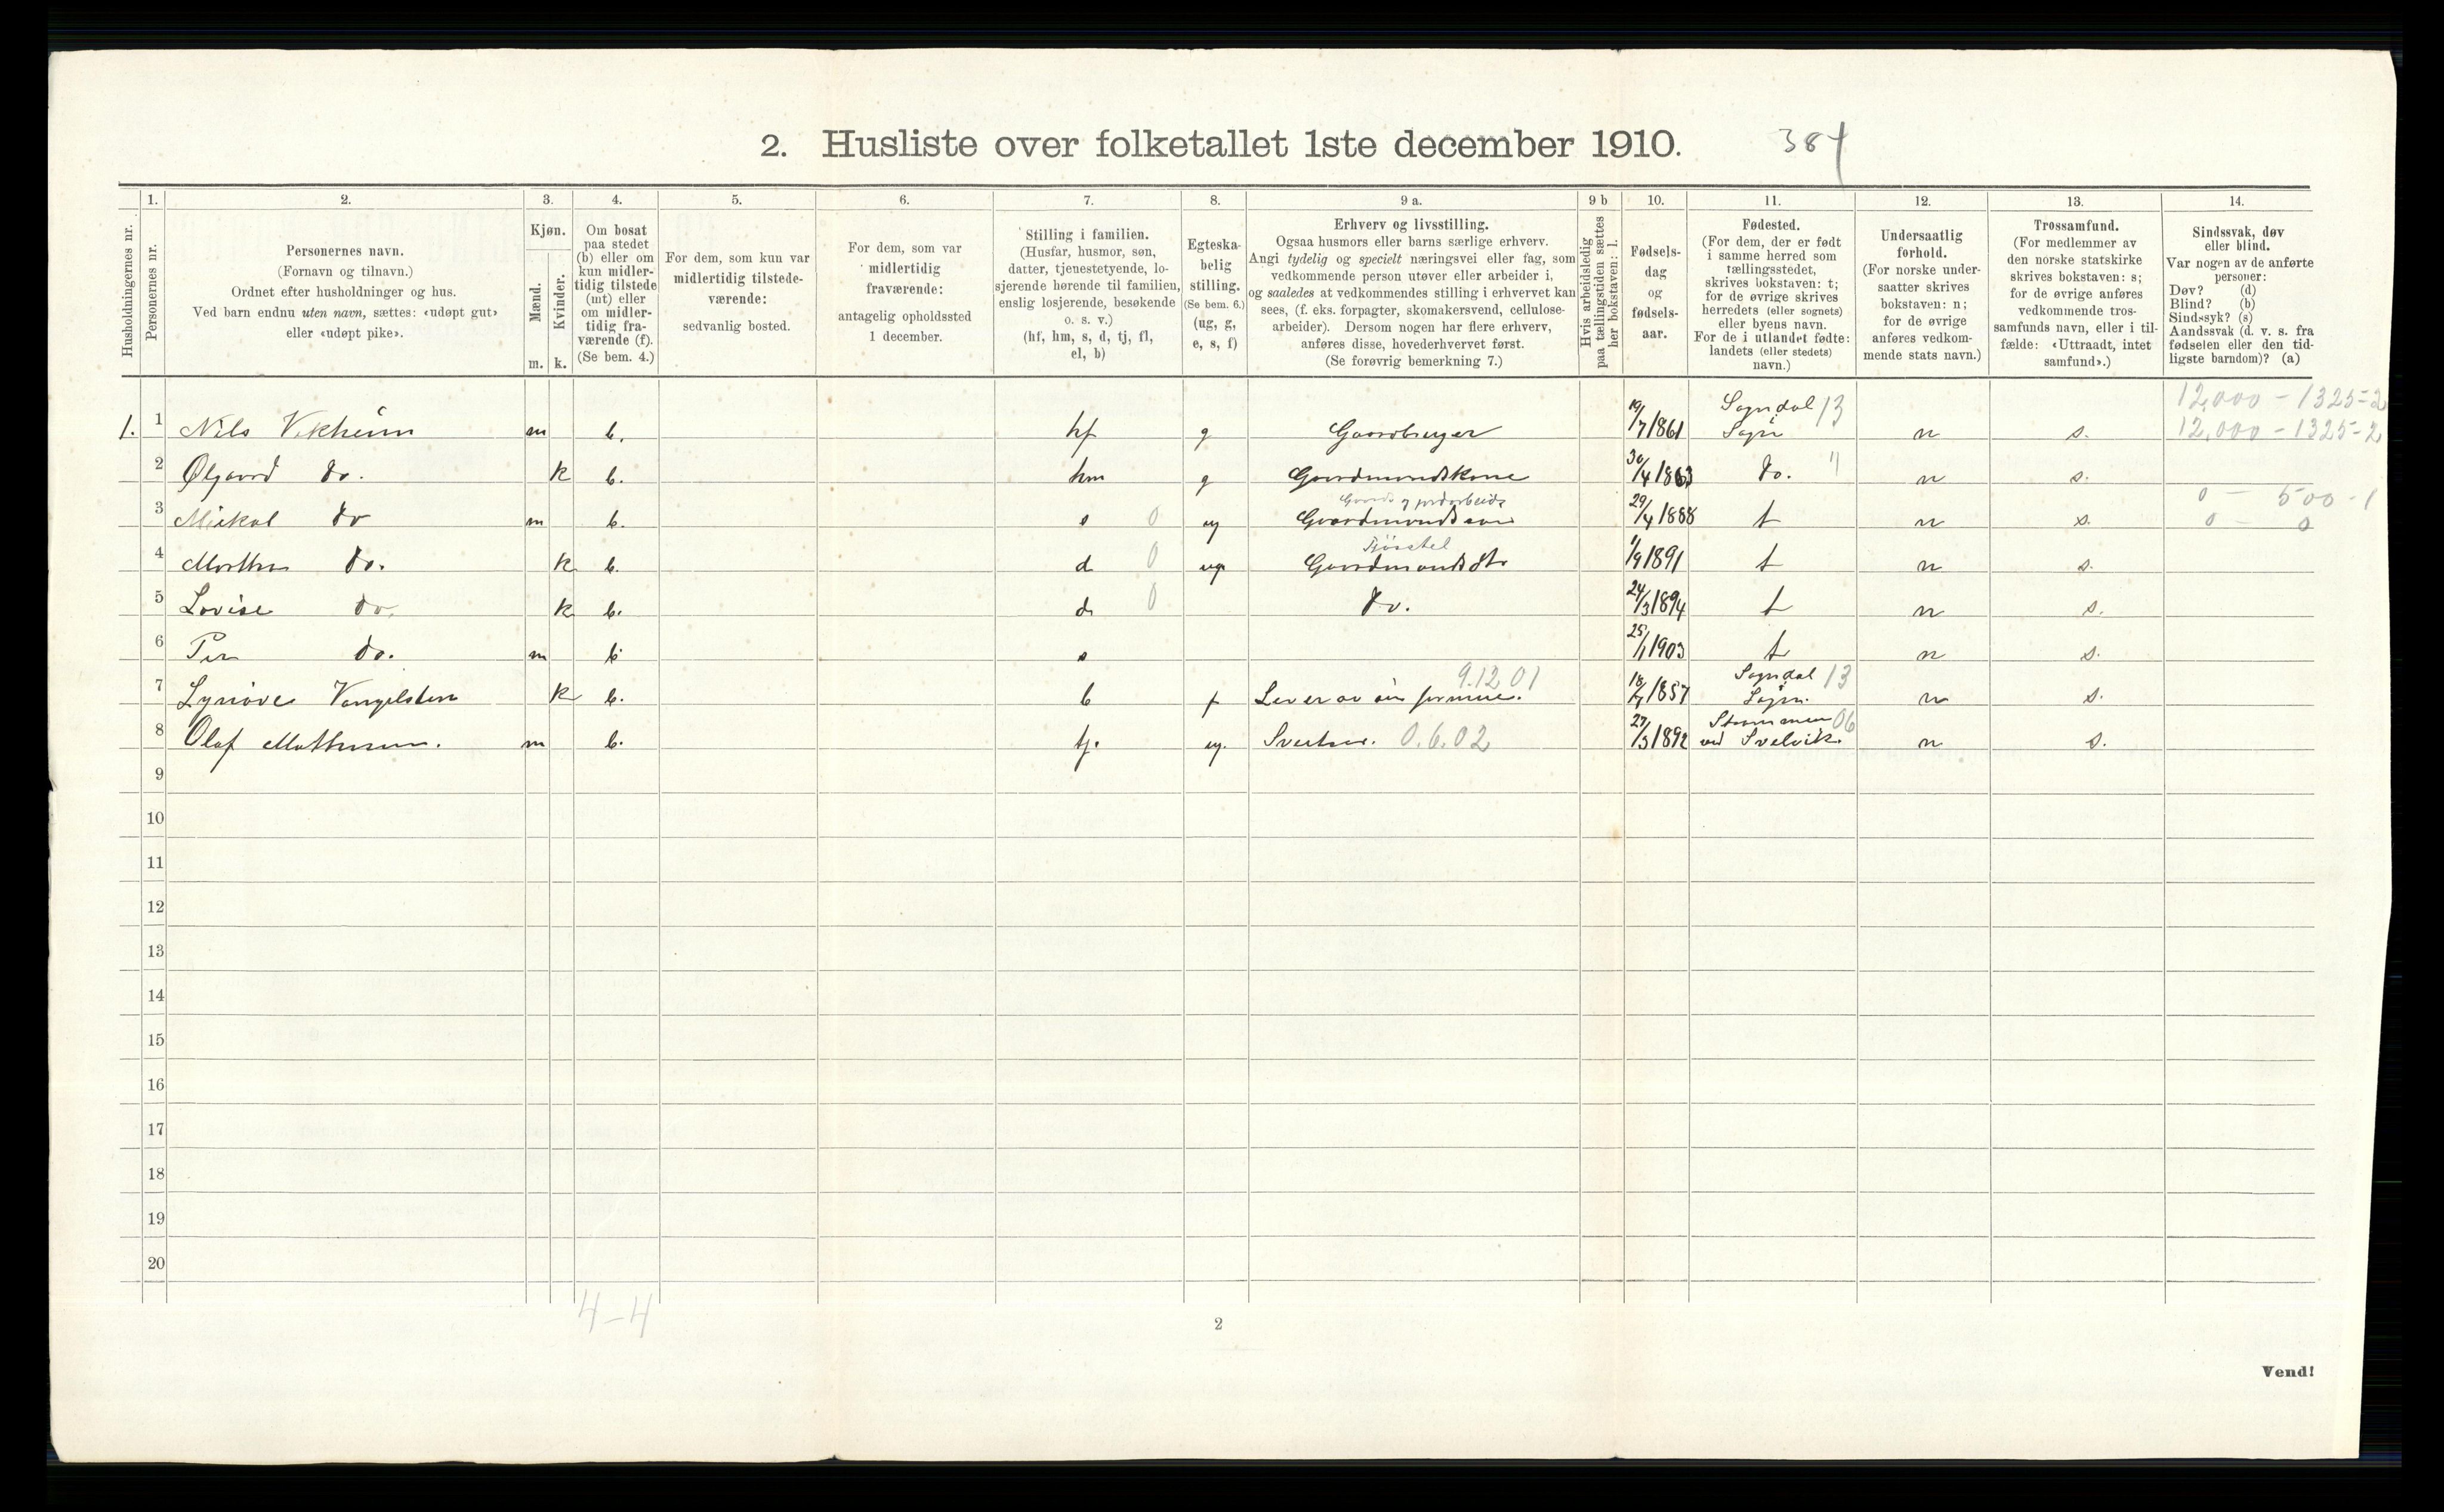 2. Husliste over folketallet 1ste december 1910. 384
Husholdningernes nr.
1. Personernes nr.
2. Personernes navn.
(Fornavn og tilnavn.)
Ordnet efter husholdninger og hus.
Ved barn endnu uten navn, sættes: «udøpt gut»
eller «udøpt pike».
3. Kjøn.
Mænd. m.
Kvinder. k.
4. Om bosat
paa stedet
(b) eller om
kun midler-
tidig tilstede
(mt) eller
om midler-
tidig fra-
værende (f).
(Se bem. 4.)
5. For dem, som kun var
midlertidig tilstede-
værende:
sedvanlig bosted.
6. For dem, som var
midlertidig
fraværende:
antagelig opholdssted
1 december.
7. Stilling i familien.
(Husfar, husmor, søn,
datter, tjenestetyende, lo-
sjerende hørende til familien,
enslig losjerende, besøkende
o. s. v.)
(hf, hm, s, d, tj, fl,
el, b)
8. Egteska-
belig
stilling.
(Se bem. 6.)
(ug, g,
e, s, f)
9 a. Erhverv og livsstilling.
Ogsaa husmors eller barns særlige erhverv.
Angi tydelig og specielt næringsvei eller fag, som
vedkommende person utøver eller arbeider i,
og saaledes at vedkommendes stilling i erhvervet kan
sees, (f. eks. forpagter, skomakersvend, cellulose-
arbeider). Dersom nogen har flere erhverv,
anføres disse, hovederhvervet først.
(Se forøvrig bemerkning 7.)
9 b Hvis arbeidsledig
paa tællingstiden sættes
her bokstaven: l.
10. Fødsels-
dag
og
fødsels-
aar.
11. Fødested.
(For dem, der er født
i samme herred som
tællingsstedet,
skrives bokstaven: t;
for de øvrige skrives
herredets (eller sognets)
eller byens navn.
For de i utlandet fødte:
landets (eller stedets)
navn.)
12. Undersaatlig
forhold.
(For norske under-
saatter skrives
bokstaven: n;
for de øvrige
anføres vedkom-
mende stats navn.)
13. Trossamfund.
(For medlemmer av
den norske statskirke
skrives bokstaven: s;
for de øvrige anføres
vedkommende tros-
samfunds navn, eller i til-
fælde: «Uttraadt, intet
samfund».)
14. Sindssvak, døv
eller blind.
Var nogen av de anførte
personer:
Døv? (d)
Blind? (b)
Sindssyk? (s)
Aandssvak (d. v. s. fra
fødselen eller den tid-
ligste barndom)? (a)
Sogndal 13 12,000 - 1325=2
1. 1 Nils Vikheim m b. hf g Gaardbruger 19/7 1861 Sogn n s. 12,000 - 1325-2
2 Ølgaard do. k b. hm g Gaardmandskone 30/4 1863 do. " n s.
0 - 500-1
3 Mikal do m b. s 0 ug Gaardmandssøn 29/4 1888 t n s. 0 - 0
4 Marthe do. k b. d 0 ug Gaardmandsdt. 1/9 1891 t n s.
5 Lovise do. k b. d 0 do. 24/3 1894 t n s.
6 Per do. m b s 25/1 1903 t n s.
9.12 01 Sogndal 13
7 Synøve k b. b f Lever av sin formue. 1857 Sogn. n s.
06
8 Olaf m b. tj. ug. 0.6.02 27/3 1892 ved Svelvik. n s.
9
10
11
12
13
14
15
16
17
18
19
20
4-4
2
Vend!